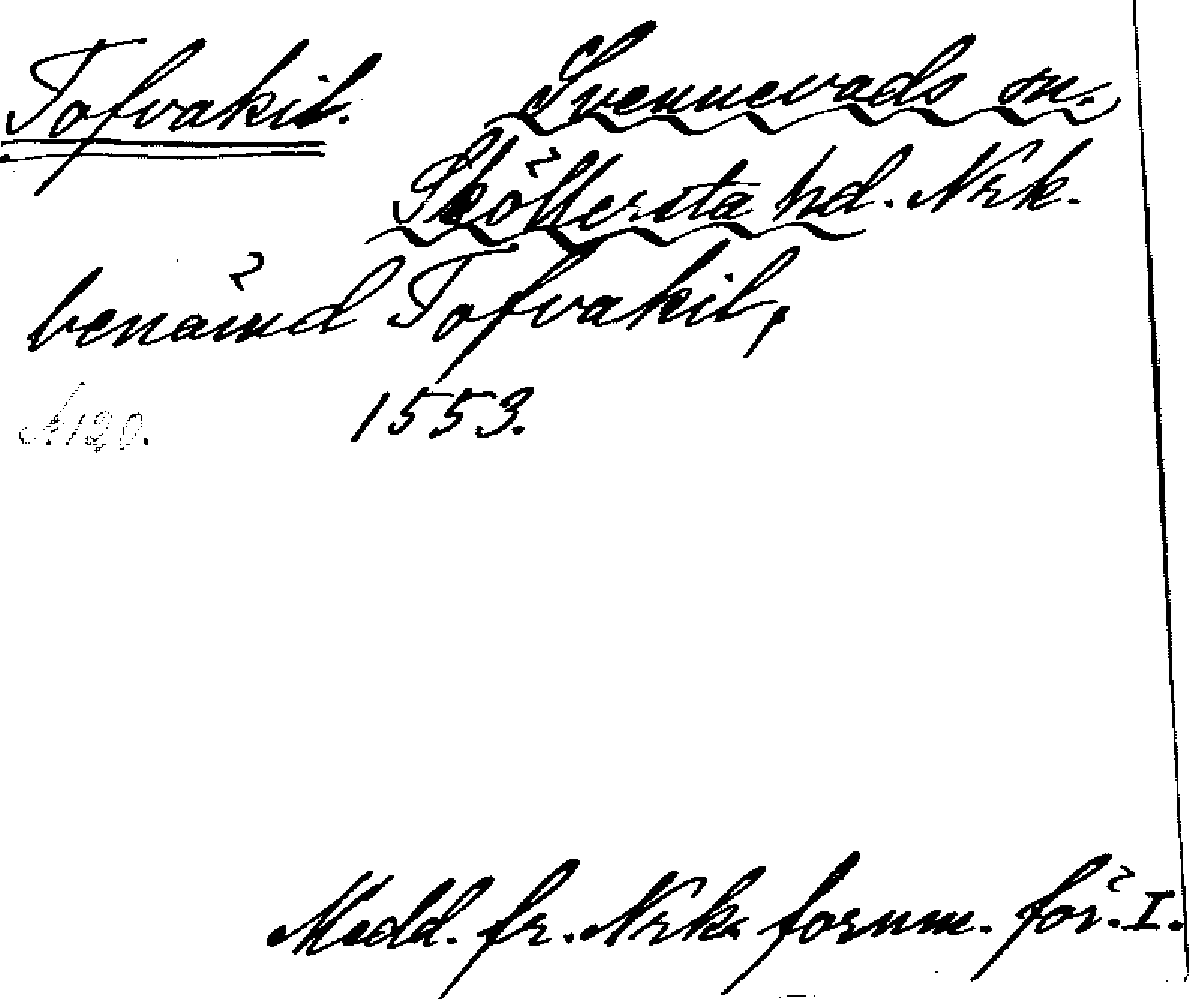 Tofvakil. Svennevads sn.
Sköllersta hd. Nrk.
benämd Tofvakil,
s. 120. 1553.
Medd. fr. Nrks fornm. för. I.